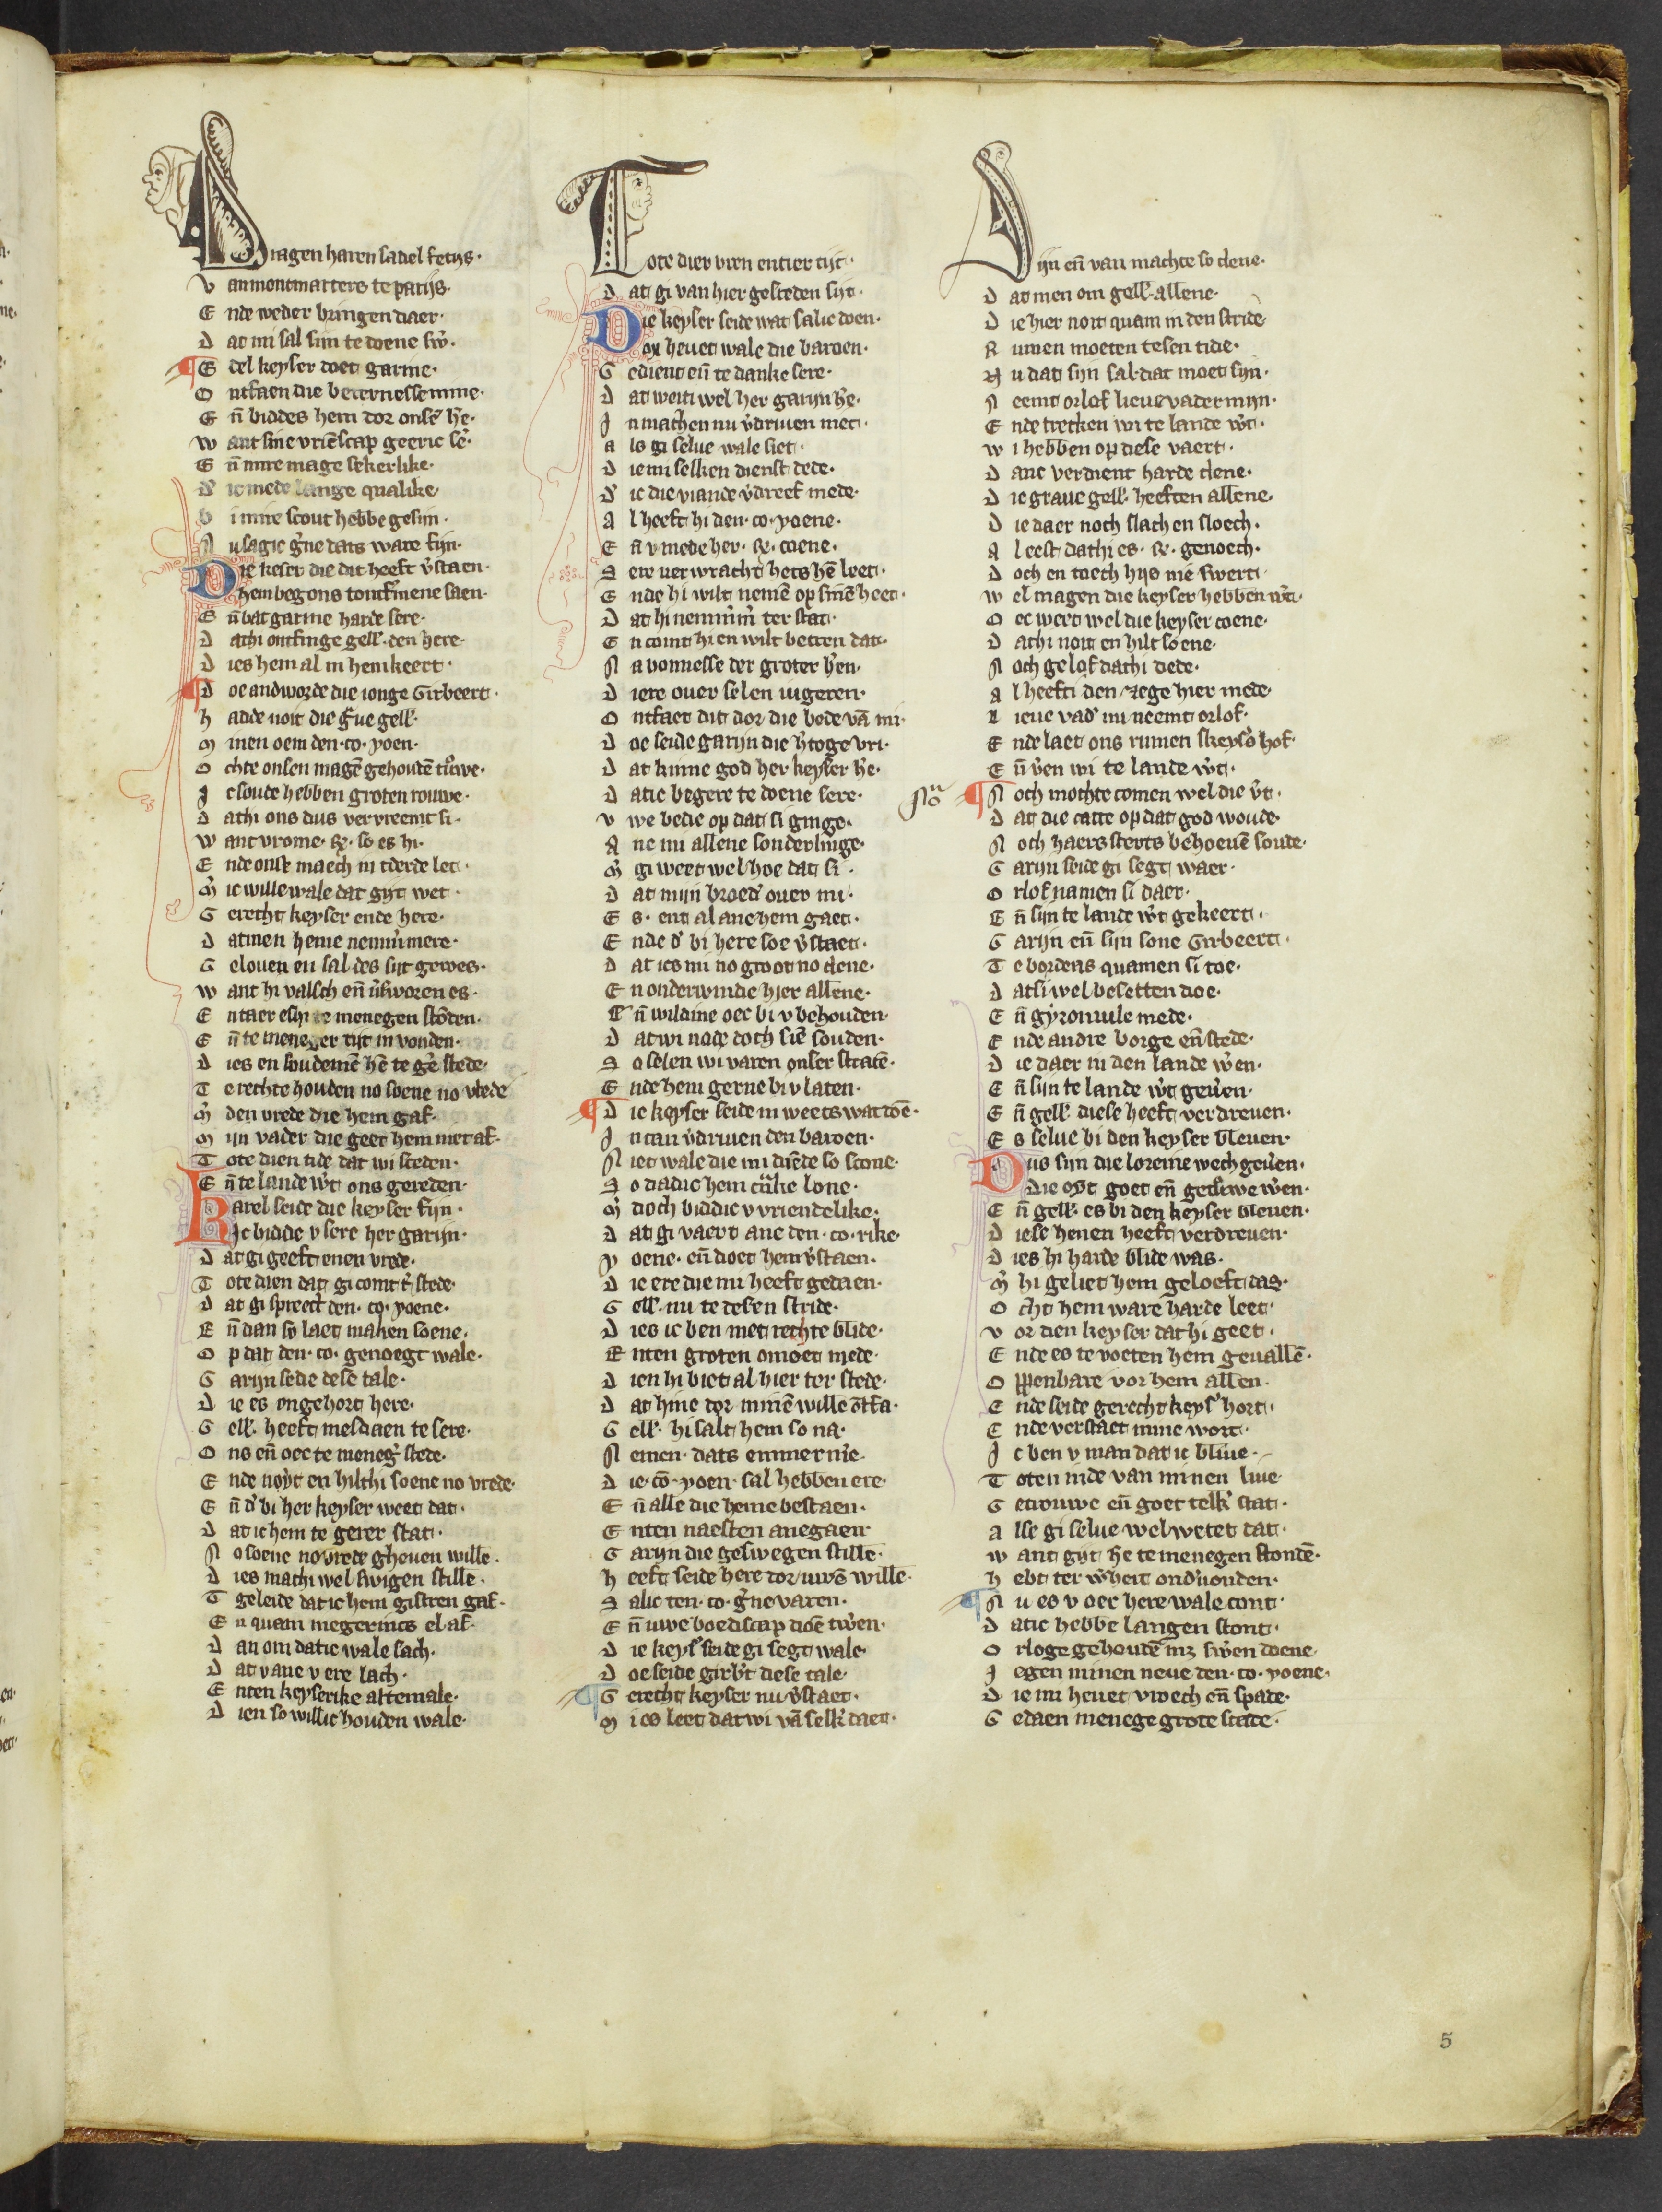 Dragen haren sadel fetijs·
V anmontmarters te parijs·
E nde weder bringen daer·
D at mi sal sijn te doene sw̉·
E del keyser doet garine·
O ntfaen die beternesse mine·
E n̄ biddes hem dor onse͂ h̉e·
W ant sine vriēscap geeric se̓·
E n̄ mire mage sekerlike·
D̓ ic mede lange qualike
B i mire scout hebbe gesijn·
N u sagic g̉ne dats ware fijn·
Die keser die dit heeft v̓staen·
Hem begons tontf̓mene saen·
E n̄ bat garine harde sere·
D athi ontfinge gell̓· den here·
D ies hem al in hem keert·
D oe andworde die ionge Girbeert·
H adde noit die g̓ue gell̓·
M inen oem den·co·yoen·
O chte onsen magē gehoudē tr̓uwe·
I c soude hebben groten rouwe·
D athi ons dus vervreemt si·
W ant vrome·R̓·so es hi·
E nde onse maech in tderde let·
M̓ ic wille wale dat gijt wet·
G erecht keyser ende here·
D atmen heme nemm̓mere·
G elouen en sal des sijt gewes·
W ant hi valsch en̄ v̓sworen es·
E ntaer eshi te menegen stōden·
E n̄ te meneger tijt in vonden·
D ies en soudemē hē te ge̓ stede·
T e rechte houden no soene no vrede
M̓ den vrede die hem gaf·
M ijn vader die geet hem met af·
T ote dien tide dat wi sceden·
E n̄ te lande w̓t ons gereden·
Karel seide die keyser fijn·
Ic bidde v sere her garijn·
D at gi geeft enen vrede·
T ote dien dat gi comt t̓ stede·
D at gi spreect den·co·yoene·
E n̄ dan so laet maken soene·
O p dat den·co·genoegt wale·
G arijn sedie dese tale·
D ie es ongehort here·
G ell̓· heeft mesdaen te sere·
O ns en̄ oec te meneg̓ stede·
E nde noyt en hilthi soene no vrede·
E n̄ d̓ bi her keyser weet dat·
D at ic hem te gerer stat·
N o soene no vrede gheuen wille·
D ies machi wel swigen stille·
T geleide dat ic hem gistren gaf·
E n quam niegerincs el af·
D an om datic wale sach·
D at v ane v ere lach·
E nten keyserike altemale·
D ien so willic houden wale·
Tote dier vren entier tijt·
D at gi van hier gesceden sijt·
Die keyser seide wat salic doen·
Dor heuet wale die baroen·
G edient en̄ te danke sere·
D at wetti wel her garijn h̓e·
I n mach en nu v̓driuen niet·
A ls gi selue wale siet·
D ie mi selken dienst dede·
D̓ ic die viande v̓dreef mede·
A l heeft hi den·co·yoene·
E n̄ v mede her·R̓·coene·
S ere verwracht hets hē leet·
E nde hi wilt nemē op sinē heet·
D at hi nemm̓m̓ ter stat·
E n comt hi en wilt betren dat·
N a vonnesse der groter h̓en·
D iere ouer selen iugeren·
O ntfaet dit dor die bede vā mi·
D oe seide garijn die h̓toge vri·
D at kinne god her keyser h̓e·
D atic begere te doene sere·
V we bede op dat si ginge·
A ne mi allene sonderlinge·
M̓ gi weet wel hoe dat si·
D at mijn broed̓ ouer mi·
E s· ent al ane hem gaet·
E nde d̓ bi here soe v̓staet·
D at ics mi no groot no clene·
E n onderwinde hier allene·
E n̄ wildine oec bi v behouden·
D atwi node doch siē souden·
S o selen wi varen onser stratē·
E nde hem gerne bi v laten·
D ie keyser seide in weets wat doē·
I n can v̓driuen den baroen·
N iet wale die mi diēde so scone·
S o dadic hem c̓nke lone·
M̓ doch biddic v vriendelike·
D at gi vaert ane den·co·rike
Y oene· en̄ doet hem v̓staen·
D ie ere die mi heeft gedaen·
G ell̓· nu te desen stride·
D ies ic ben met rechte blide·
E nten groten omoet mede·
D ien hi biet al hier ter stede·
D at hine dor minē wille ōtfa·
G ell̓· hi salt hem so na·
N emen· dats emmernie·
D ie·cō·yoen·sal hebben ere·
E n̄ alle die heme bestaen·
E nten naesten anegaen·
G arijn die geswegen stille·
H eeft seide here dor uwē wille·
S alic ten·co·g̓ne varen·
E n̄ uwe boedscap doē tw̓en·
D ie keys̓ seide gi segt wale·
D oe seide girb̓t dese tale·
G erecht keyser nu v̓staet·
M i es leet dat wi vā selk̓ daet·
Sijn en̄ van machte so clene·
D at men om gell̓· allene·
D ie hier noit quam in den stride
R umen moeten tesen tide·
N u dat sijn sal·dat moet sijn·
N eemt orlof lieue vader mijn·
E nde trecken wi te lande w̓t·
W i hebben op dese vaert·
D anc verdient harde clene·
D ie graue gell̓· heeften allene·
D ie daer noch slach en sloech·
A l eest dathi es·R̓·genoech·
D och en toech hijs nie swert·
W el magen die keyser hebben w̓t·
O ec weet wel die keyser coene·
D athi noit en hilt soene·
N och gelof dathi dede·
A l heefti den zege hier mede·
L ieue vad̓ nu neemt orlof·
E nde laet ons rumen skeys̓ hof·
E n̄ v̓en wi te lande w̓t·
N och mochte comen wel die v̓t·
D at die catte op dat god woude·
N och haers sterts behoeuē soude·
G arijn seide gi segt waer·
O rlof namen si daer·
E n̄ sijn te lande w̓t gekeert·
G arijn en̄ sijn sone Girbeert·
T e bordeas quamen si toe·
D atsi wel besetten doe·
E n̄ gyronuile mede·
E nde andre borge en̄ stede·
D ie daer in den lande w̓en·
E n̄ sijn te lande w̓t gev̓en·
E n̄ gell̓· diese heeft verdreuen·
E s selue bi den keyser bleuen·
Dus sijn die loreine wech gev̓en·
Die oyt goet en̄ getr̓uwe w̓en·
E n̄ gell̓· es bi den keyser bleuen·
D iese henen heeft verdreuen·
D ies hi harde blide was·
M̓ hi geliet hem geloeft das·
O cht hem ware harde leet·
V or dien keyser dat hi geet·
E nde es te voeten hem geuallē·
O ppenbare vor hem allen·
E nde seide gerecht keys̓ hort·
E nde verstaet mine wort·
I c ben v man dat ic bliue·
T oten inde van minen liue·
G etrouwe en̄ goet telk̓ stat·
A lse gi selue wel wetet dat·
W ant gijt h̓e te menegen stondē·
H ebt ter w̓heit ond̓uonden·
N u es v oec here wale cont·
D atic hebbe langen stont·
O rloge gehoudē mȝ sw̓en doene·
I egen minen neue den·co·yoene·
D ie mi heuet vroech en̄ spade·
G edaen menege grote scade·
5